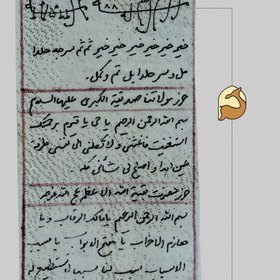 خیر خیر خیر خیر خیر خیر ثم ثم
تم وکمل
حرز مولاتنا صدیقة الکبری علیها السلام
بسم الله الرحمن الرحیم یا حی یا قیوم برحمتک
استغیث فاغثنی ولا تکلنی الی نفسی طرفة
عین ابدا واصلح لی شأنی کله
حرز حضرت بقیة الله الاعظم عج
بسم الله الرحمن الرحیم یا مالک الرقاب ویا
هازم الاحزاب یا مفتح الابواب یا مسبب
الاسباب سبب لنا سببا لا نستطیع له